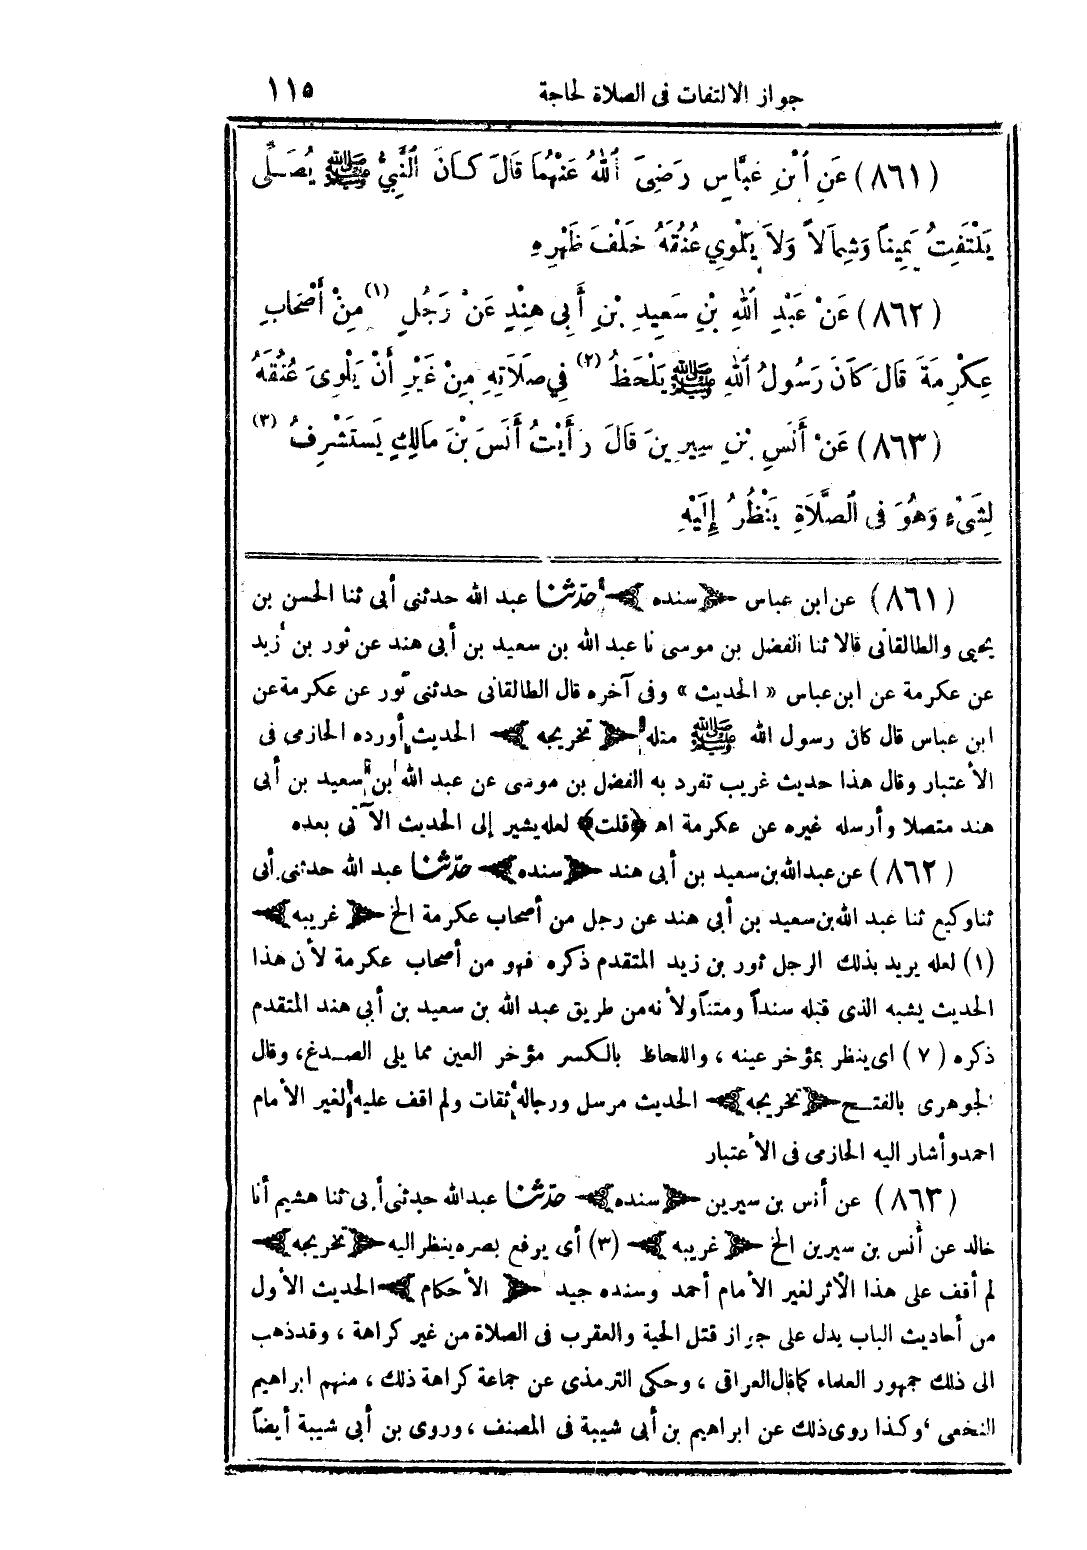 جواز الالتفات فى الصلاة لحاجة ١١٥
(٨٦١) عَنِ ٱبْنِ عَبَّاسٍ رَضِىَ ٱللهُ عَنْهُمَا قَالَ كَانَ ٱلنَّبِيُّ ﷺ يُصَلِّى
يَلْتَفِتُ يَمِيناً وَشِمَالاً وَلاَ يَلْوِي عُنُقَهُ خَلْفَ ظَهْرِهِ
(٨٦٢) عَنْ عَبْدِ ٱللهِ بْنِ سَعِيدِ بْنِ أَبِى هِنْدٍ عَنْ رَجُلٍ (١) مِنْ أَصْحَابِ
عِكْرِمَةَ قَالَ كَانَ رَسُولُ ٱللهِ ﷺ يَلْحَظُ (٢) فِي صَلَاتِهِ مِنْ غَيْرِ أَنْ يَلْوِىَ عُنُقَهُ
(٨٦٣) عَنْ أَنَسِ بْنِ سِيرِينَ قَالَ رَأَيْتُ أَنَسَ بْنَ مَالِكٍ يَسْتَشْرِفُ (٣)
لِشَىْءٍ وَهُوَ فِى ٱلصَّلَاةِ يَنْظُرُ إِلَيْهِ
(٨٦١) عن ابن عباس ﴿سنده﴾ حدّثنا عبد الله حدثنى أبى ثنا الحسن بن
يحيى والطالقانى قالا ثنا الفضل بن موسى نا عبد الله بن سعيد بن أبى هند عن ثور بن زيد
عن عكرمة عن ابن عباس «الحديث» وفى آخره قال الطالقانى حدثنى ثور عن عكرمة عن
ابن عباس قال كان رسول الله ﷺ مثله ﴿تخريجه﴾ الحديث أورده الحازمى فى
الأعتبار وقال هذا حديث غريب تفرد به الفضل بن موسى عن عبد الله بن سعيد بن أبى
هند متصلا وأرسله غيره عن عكرمة اه ﴿قلت﴾ لعله يشير إلى الحديث الآتى بعده
(٨٦٢) عن عبد الله بن سعيد بن أبى هند ﴿سنده﴾ حدّثنا عبد الله حدثنى أبى
ثنا وكيع ثنا عبد الله بن سعيد بن أبى هند عن رجل من أصحاب عكرمة الخ ﴿غريبه﴾
(١) لعله يريد بذلك الرجل ثور بن زيد المتقدم ذكره فهو من أصحاب عكرمة لأن هذا
الحديث يشبه الذى قبله سنداً ومتناً ولأنه من طريق عبد الله بن سعيد بن أبى هند المتقدم
ذكره (٧) اى ينظر بمؤخر عينه ، واللحاظ بالكسر مؤخر العين مما يلى الصدغ، وقال
الجوهرى بالفتح ﴿تخريجه﴾ الحديث مرسل ورجاله ثقات ولم اقف عليه لغير الأمام
احمد وأشار اليه الحازمى فى الأعتبار
(٨٦٣) عن أنس بن سيرين ﴿سنده﴾ حدّثنا عبد الله حدثنى أبى ثنا هشيم أنا
خالد عن أنس بن سيرين الخ ﴿غريبه﴾ (٣) أى يرفع بصره ينظر اليه ﴿تخريجه﴾
لم أقف على هذا الأثر لغير الأمام أحمد وسنده جيد ﴿الأحكام﴾ الحديث الأول
من أحاديث الباب يدل على جواز قتل الحية والعقرب فى الصلاة من غير كراهة ، وقد ذهب
الى ذلك جمهور العلماء كما قال العراقى ، وحكى الترمذى عن جماعة كراهة ذلك ، منهم ابراهيم
النخعى ، وكذا روى ذلك عن ابراهيم بن أبى شيبة فى المصنف ، وروى بن أبى شيبة أيضاً